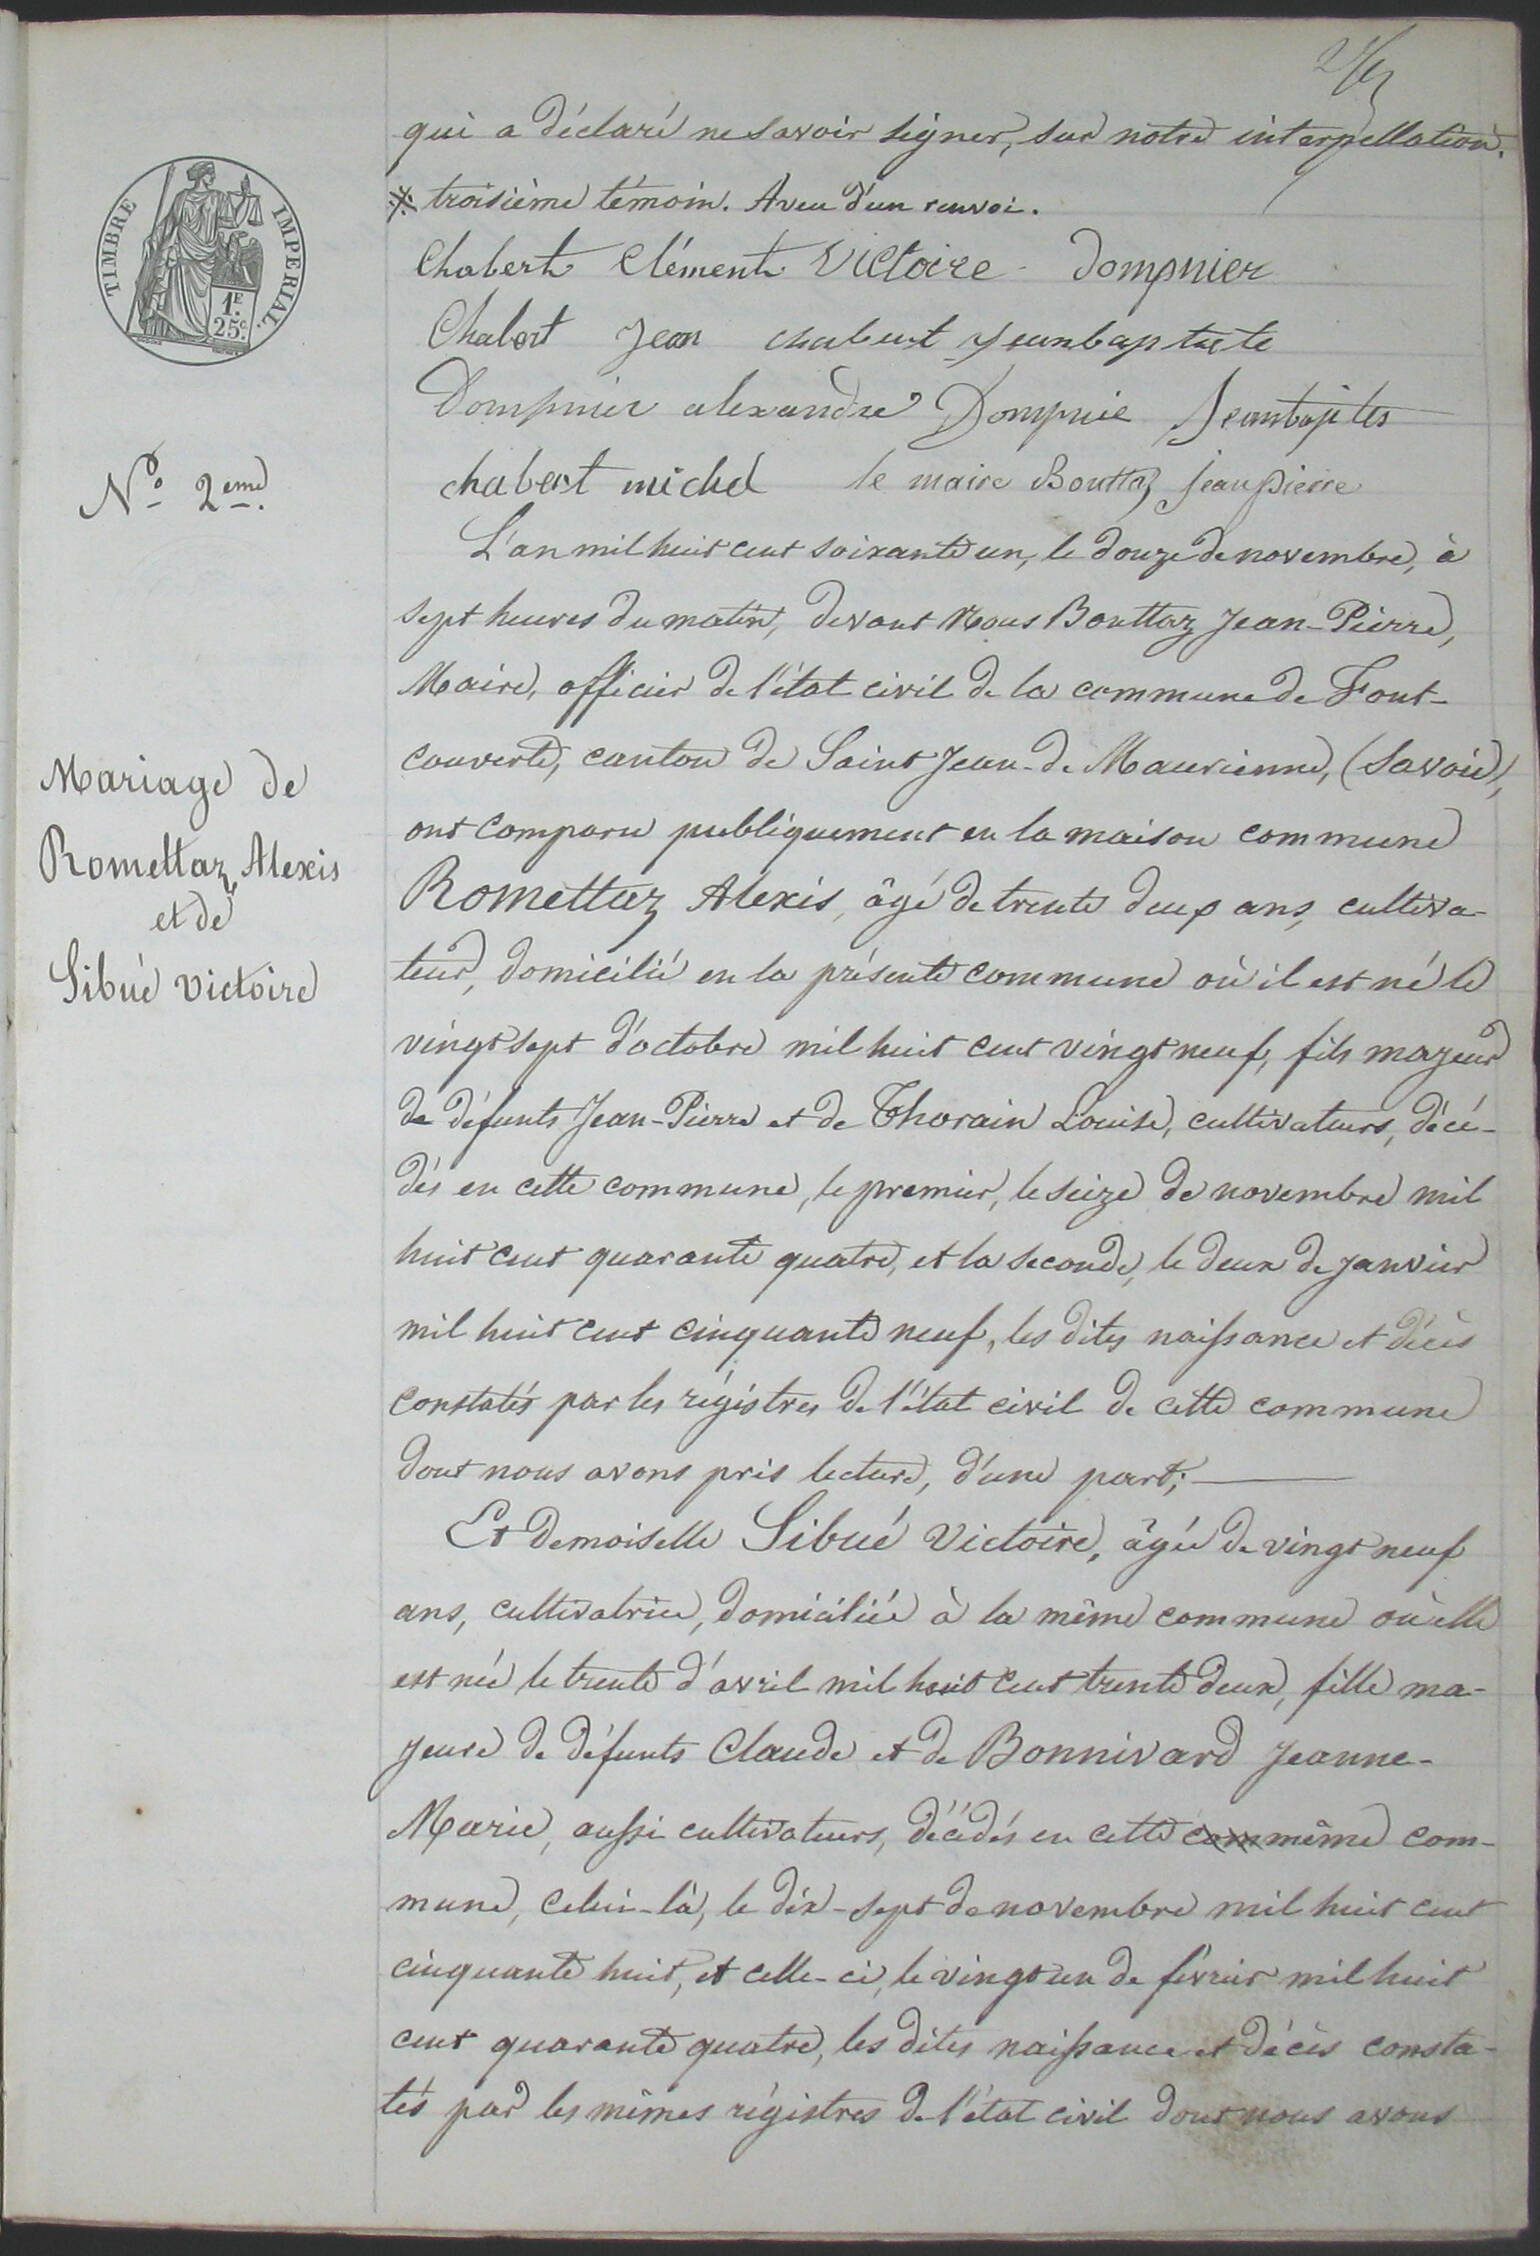 qui a déclaré ne savoir signer, sur notre interpellation.
troisième témoin. Aveu d'un renvoi.
TIMBRE IMPERIAL.
1F.
25c.
Chabert Clément Victoire - dompnier
Chabert Jean chabert Jeanbaptiste
Dompnier alexandre Dompnie Jeanbaptes
chabert michel le maire Bouttaz jean pierre
No 2eme.
L'an mil huit cent soixante un, le douze de novembre, à
sept heures du matin, devant Nous Bouttaz Jean-Pierre,
Maire, officier de l'état civil de la commune de Font-
couverte, canton de Saint Jean-de Maurienne, (Savoie),
ont comparu publiquement en la maison commune
Mariage de
Romettaz Alexis
et de
Sibué Victoire
Romettaz Alexis, âgé de trente deux ans, cultiva-
teur, domicilié en la présente commune où il est né le
vingt sept d'octobre mil huit cent vingt neuf, fils majeur
de défunts Jean-Pierre et de Thorain Louise, cultivateurs, décé-
dés en cette commune, le premier, le seize de novembre mil
huit cent quarante quatre, et la seconde, le deux de janvier
mil huit cent cinquante neuf, les dites naissance et décès
constatés par les régistres de l'état civil de cette commune
dont nous avons pris lecture, d'une part;
Et Demoiselle Sibué Victoire, âgée de vingt neuf
ans, cultivatrice, domiciliée à la même commune où elle
est née le trente d'avril mil huit cent trente deux, fille ma-
jeure de défunts Claude et de Bonnivard Jeanne-
Marie, aussi cultivateurs, décédés en cette com même com-
mune, celui-là, le dix-sept de novembre mil huit cent
cinquante huit, et celle-ci, le vingt un de février mil huit
cent quarante quatre, les dites naissance et décès consta-
tés par les mêmes régistres de l'état civil dont nous avons